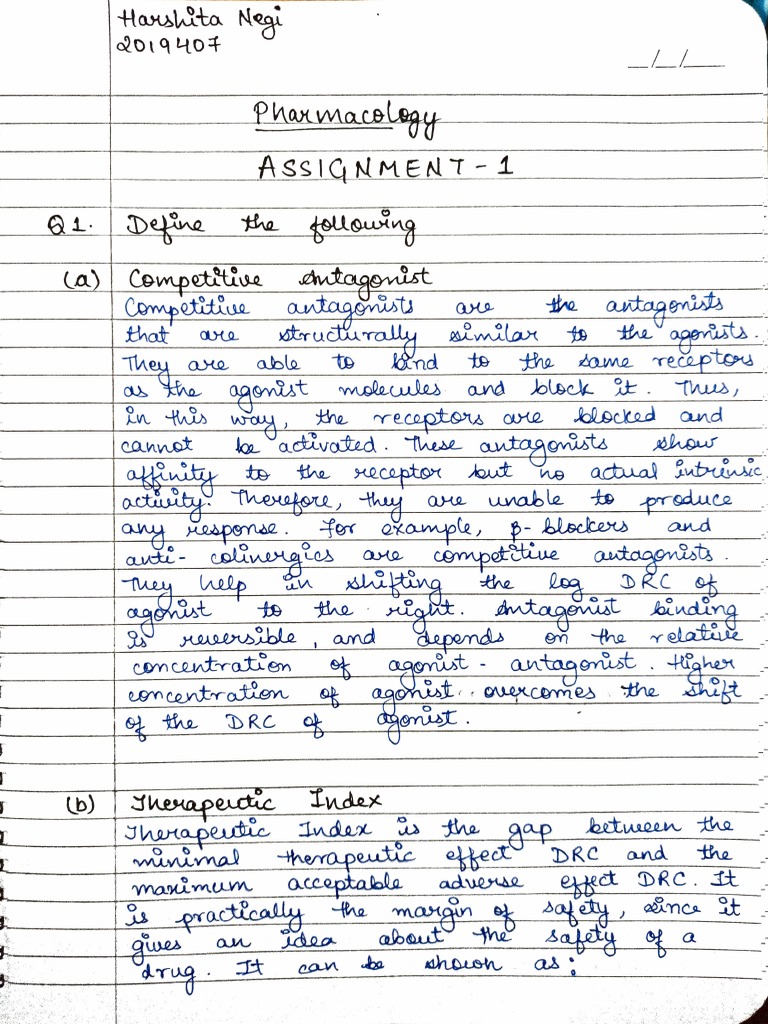 Harshita Negi
2019407
_/_/_
Pharmacology
ASSIGNMENT-1
Q1. Define the following
(a) Competitive Antagonist
Competitive antagonists are the antagonists
that are structurally similar to the agonists.
They are able to bind to the same receptors
as the agonist molecules and block it. Thus,
in this way, the receptors are blocked and
cannot be activated. These antagonists show
affinity to the receptor but no actual intrinsic
activity. Therefore, they are unable to produce
any response. For example, β-blockers and
anti-colinergics are competitive antagonists.
They help in shifting the log DRC of
agonist to the right. Antagonist binding
is reversible, and depends on the relative
concentration of agonist - antagonist. Higher
concentration of agonist overcomes the shift
of the DRC of agonist.
(b) Therapeutic Index
Therapeutic Index is the gap between the
minimal therapeutic effect DRC and the
maximum acceptable adverse effect DRC. It
is practically the margin of safety, since it
gives an idea about the safety of a
drug. It can be shown as: